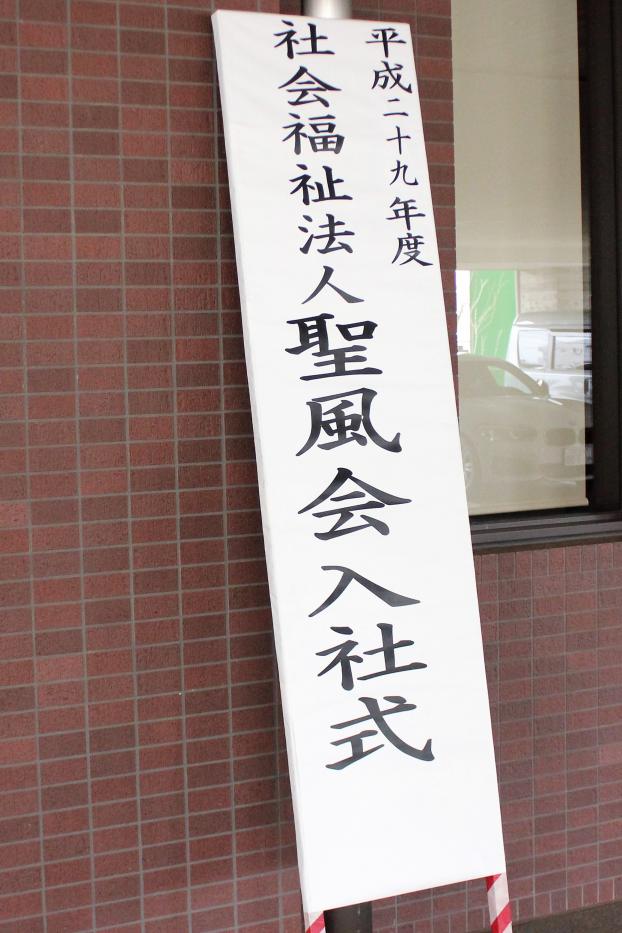 平成二十九年度
社会福祉法人聖風会入社式